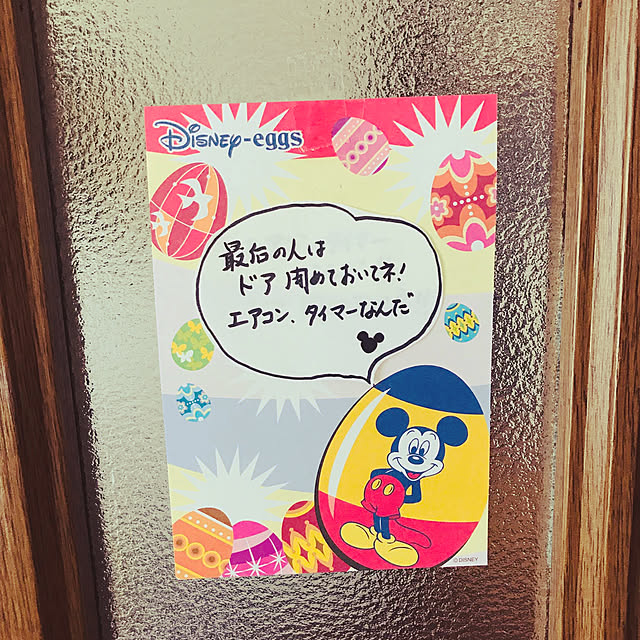 Disney-eggs
最后の人は
ドア閉めておいてネ!
エアコン、タイマーなんだ
© DISNEY